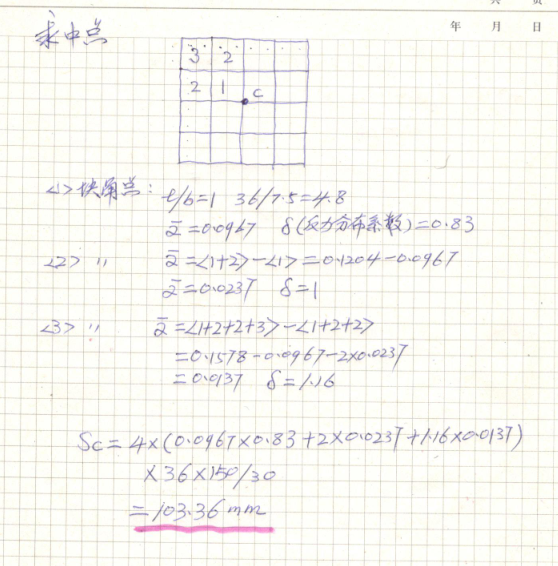 共 页
年 月 日
求中点
3 2
2 1 C
<1>块角点: l/b=1 36/7.5=4.8
ᾱ=0.0967 δ(反力分布系数)=0.83
<2> 〃 ᾱ=<1+2>-<1>=0.1204-0.0967
ᾱ=0.0237 δ=1
<3> 〃 ᾱ=<1+2+2+3>-<1+2+2>
=0.1578-0.0967-2×0.0237
=0.0137 δ=1.16
Sc=4×(0.0967×0.83+2×0.0237+1.16×0.0137)
×36×150/30
=103.36mm